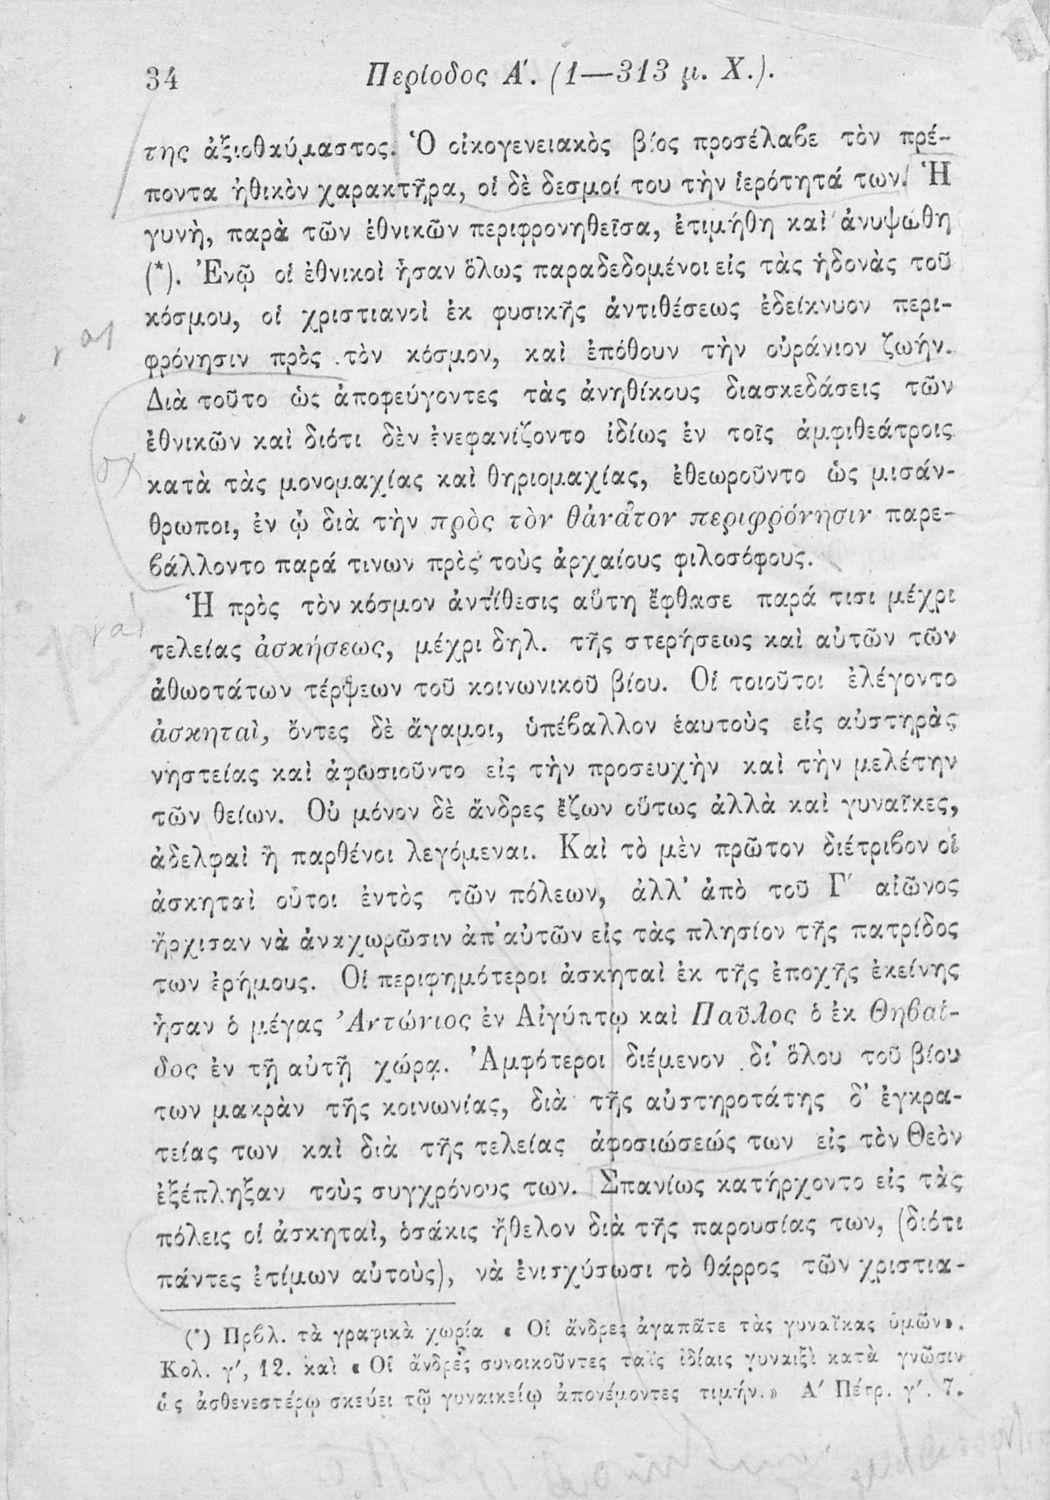 34 Περίοδος Α΄. (1—313 μ. Χ.).
της ἀξιοθαύμαστος. Ὁ οἰκογενειακὸς βίος προσέλαβε τὸν πρέ-
ποντα ἠθικὸν χαρακτῆρα, οἱ δὲ δεσμοί του τὴν ἱερότητά των. Ἡ
γυνὴ, παρὰ τῶν ἐθνικῶν περιφρονηθεῖσα, ἐτιμήθη καὶ ἀνυψώθη
(*). Ἐνῷ οἱ ἐθνικοὶ ἦσαν ὅλως παραδεδομένοι εἰς τὰς ἡδονὰς τοῦ
κόσμου, οἱ χριστιανοὶ ἐκ φυσικῆς ἀντιθέσεως ἐδείκνυον περι-
φρόνησιν πρὸς τὸν κόσμον, καὶ ἐπόθουν τὴν οὐράνιον ζωήν.
Διὰ τοῦτο ὡς ἀποφεύγοντες τὰς ἀνηθίκους διασκεδάσεις τῶν
ἐθνικῶν καὶ διότι δὲν ἐνεφανίζοντο ἰδίως ἐν τοῖς ἀμφιθεάτροις
κατὰ τὰς μονομαχίας καὶ θηριομαχίας, ἐθεωροῦντο ὡς μισάν-
θρωποι, ἐν ᾧ διὰ τὴν πρὸς τὸν θάνατον περιφρόνησιν παρε-
βάλλοντο παρά τινων πρὸς τοὺς ἀρχαίους φιλοσόφους.
Ἡ πρὸς τὸν κόσμον ἀντίθεσις αὕτη ἔφθασε παρά τισι μέχρι
τελείας ἀσκήσεως, μέχρι δηλ. τῆς στερήσεως καὶ αὐτῶν τῶν
ἀθωοτάτων τέρψεων τοῦ κοινωνικοῦ βίου. Οἱ τοιοῦτοι ἐλέγοντο
ἀσκηταὶ, ὄντες δὲ ἄγαμοι, ὑπέβαλλον ἑαυτοὺς εἰς αὐστηρὰς
νηστείας καὶ ἀφωσιοῦντο εἰς τὴν προσευχὴν καὶ τὴν μελέτην
τῶν θείων. Οὐ μόνον δὲ ἄνδρες ἔζων οὕτως ἀλλὰ καὶ γυναῖκες,
ἀδελφαὶ ἢ παρθένοι λεγόμεναι. Καὶ τὸ μὲν πρῶτον διέτριβον οἱ
ἀσκηταὶ οὗτοι ἐντὸς τῶν πόλεων, ἀλλ' ἀπὸ τοῦ Γ΄ αἰῶνος
ἤρχισαν νὰ ἀναχωρῶσιν ἀπ' αὐτῶν εἰς τὰς πλησίον τῆς πατρίδος
των ἐρήμους. Οἱ περιφημότεροι ἀσκηταὶ ἐκ τῆς ἐποχῆς ἐκείνης
ἦσαν ὁ μέγας Ἀντώνιος ἐν Αἰγύπτῳ καὶ Παῦλος ὁ ἐκ Θηβαΐ-
δος ἐν τῇ αὐτῇ χώρᾳ. Ἀμφότεροι διέμενον δι' ὅλου τοῦ βίου
των μακρὰν τῆς κοινωνίας, διὰ τῆς αὐστηροτάτης δ' ἐγκρα-
τείας των καὶ διὰ τῆς τελείας ἀφοσιώσεώς των εἰς τὸν Θεὸν
ἐξέπληξαν τοὺς συγχρόνους των. Σπανίως κατήρχοντο εἰς τὰς
πόλεις οἱ ἀσκηταὶ, ὁσάκις ἤθελον διὰ τῆς παρουσίας των, (διότι
πάντες ἐτίμων αὐτοὺς), νὰ ἐνισχύσωσι τὸ θάρρος τῶν χριστια-
(*) Πρβλ. τὰ γραφικὰ χωρία « Οἱ ἄνδρες ἀγαπᾶτε τὰς γυναῖκας ὑμῶν».
Κολ. γ΄, 12. καὶ « Οἱ ἄνδρες συνοικοῦντες ταῖς ἰδίαις γυναιξὶ κατὰ γνῶσιν
ὡς ἀσθενεστέρῳ σκεύει τῷ γυναικείῳ ἀπονέμοντες τιμήν.» Α΄ Πέτρ. γ΄. 7.